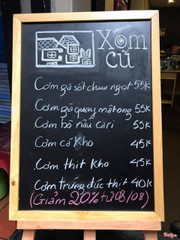 Xóm
cũ
Cơm gà sốt chua ngọt 55k
Cơm gà quay mật ong 55k
Cơm bò nấu cari 55k
Cơm cá kho 45k
Cơm thịt kho 45k
Cơm trứng đúc thịt 40k
(Giảm 20% từ 08/08)